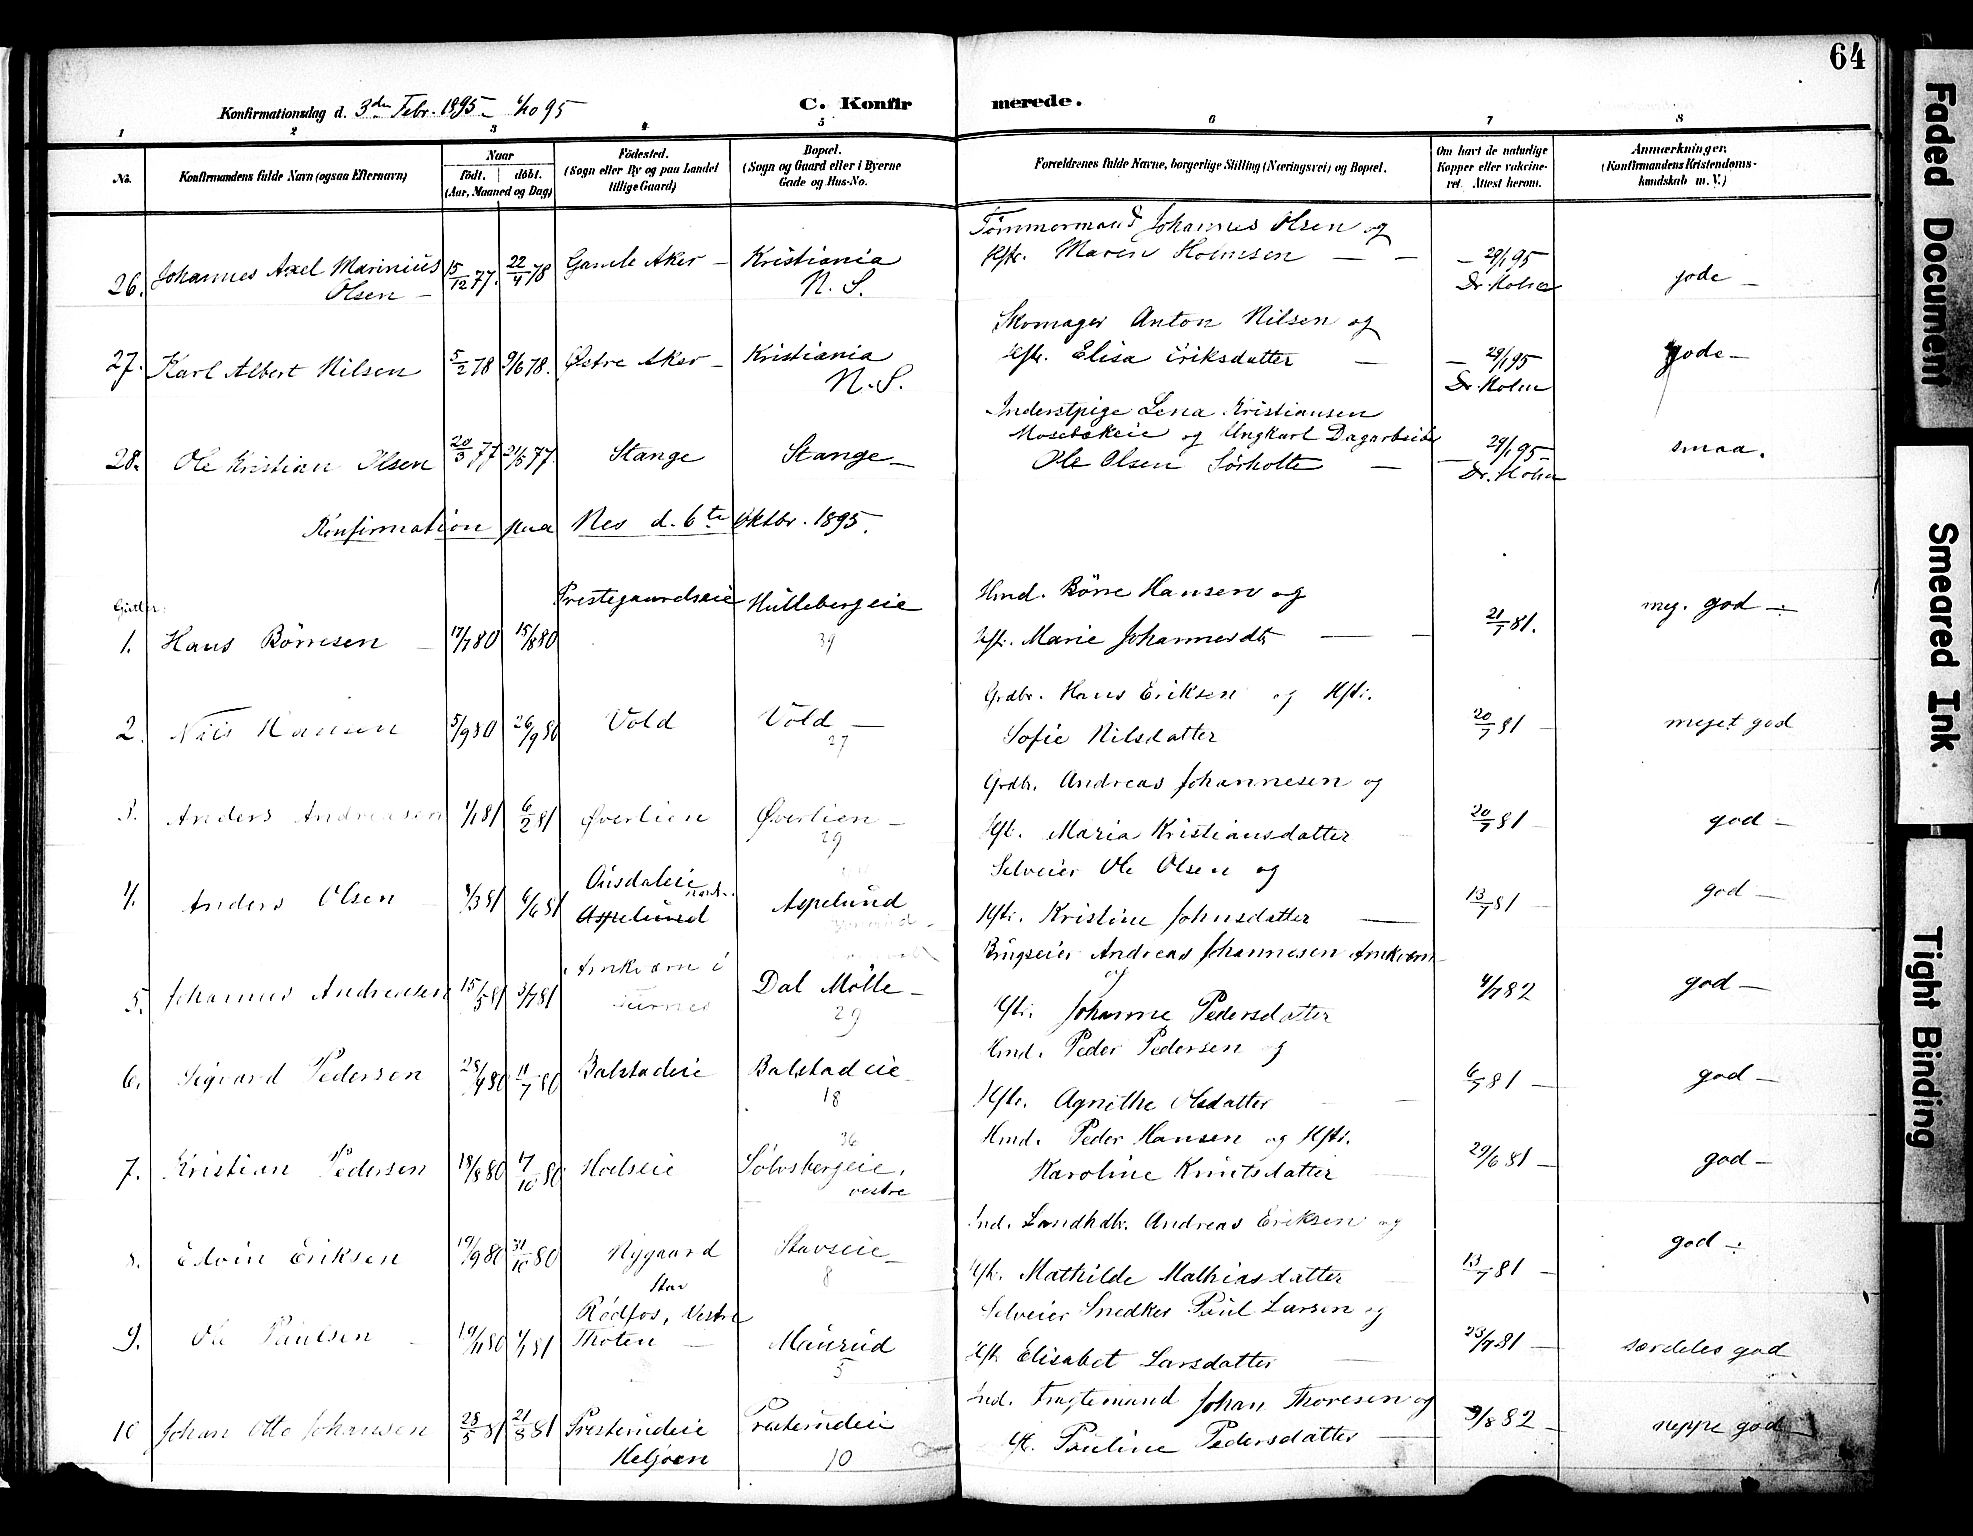 64
Konfirmationsdag d. 3die Febr. 1895 - 6/10 95
C. Konfirmerede.
1 2 3 4 5 6 7 8
No.
Konfirmandens fulde Navn (ogsaa Efternavn)
Naar
født. døbt.
(Aar, Maaned og Dag)
Fødested.
(Sogn eller By og paa Landet
tillige Gaard)
Bopæl.
(Sogn og Gaard eller i Byerne
Gade og Hus-No.
Forældrenes fulde Navne, borgerlige Stilling (Næringsvei) og Bopæl.
Om havt de naturlige
Kopper eller vakcine-
ret. Attest herom.
Anmærkninger.
(Konfirmandens Kristendoms-
kundskab m. V.)
26. Johannes Axel Marinius Olsen - 15/12 77. 22/4 78 Gamle Aker - Kristiania N. S.
Tømmermand Johannes Olsen og
Hstr. Maren Holmsen - - 29/1 95 Dr. Holm gode -
27. Karl Albert Nilsen 5/2 78 9/6 78. Østre Aker - Kristiania N. S.
Skomager Anton Nilsen og
Hstr. Elisa Eriksdatter - 29/1 95 Dr. Holm gode -
28. Ole Kristian Olsen 20/3 77 21/5 77. Stange Stange -
Inderstpige Lena Kristiansen
og Ungkarl Dagarbeider
Ole Olsen Sørholte - 29/1 95 - Dr. Holm smaa.
Konfirmation paa Nes d. 6te Oktbr. 1895.
Gutter:
1. Hans Børresen - 17/7 80 15/8 80 Prestegaardseie Hullebergeie 39
Hmd. Børre Hansen og
Hst. Marie Johannesdtr - 21/7 81. meg. god -
2. Nils Hansen 5/9 80 26/9 80 Vold Vold - 27
Grdbr. Hans Eriksen og Hstr.
Sofie Nilsdatter 20/7 81 - meget god
3. Anders Andreasen 1/1 81 6/2 81 Øverlien Øverlien - 29
Grdbr. Andreas Johannesen og
Hst. Maria Kristiansdatter 20/7 81 - god -
4. Anders Olsen 4/3 81 6/6 81 Aspelund Aspelund
Selveier Ole Olsen og
Hstr. Kristine Johnsdatter - 13/7 81 - god -
5. Johannes Andreasen 15/5 81 3/7 81 Arnkværn i Furnes Dal Mølle - 29
Brugseier Andreas Johannesen Arnkværn
og
Hstr. Johanne Pedersdatter 4/7 82 god -
6. Sigvard Pedersen 28/4 80 11/7 80 Balstadeie Balstadeie - 18
Hmd. Peder Pedersen og
Hstr. Agnethe Olsdatter 6/7 81 - god -
7. Kristian Pedersen 18/8 80 17/10 80 Hoelseie Sølvsbergeie, vestre 36
Hmd. Peder Hansen og Hstr.
Karoline Knutsdatter 29/6 81 - god -
8. Edvin Eriksen 19/9 80 31/10 80 Nygaard Stav Stavseie - 8
Ind. Landhdlr. Andreas Eriksen og
Hst. Mathilde Mathiasdatter 13/7 81 - god -
9. Ole Paulsen - 19/11 80 1/1 81 Rødfos, Vestre Thoten - Maurud 5
Selveier Snedker Paul Larsen og
Hst. Elisabet Larsdatter - 23/7 81 - særdeles god
10 Johan Otto Johansen 28/5 81 21/8 81 Presterudeie Helgøen Presterudeie 10
Ind. Fragtemand Johan Thoresen og
Hst. Pauline Pedersdatter - 9/8 82 - neppe god
Faded Document
Smeared Ink
Tight Binding